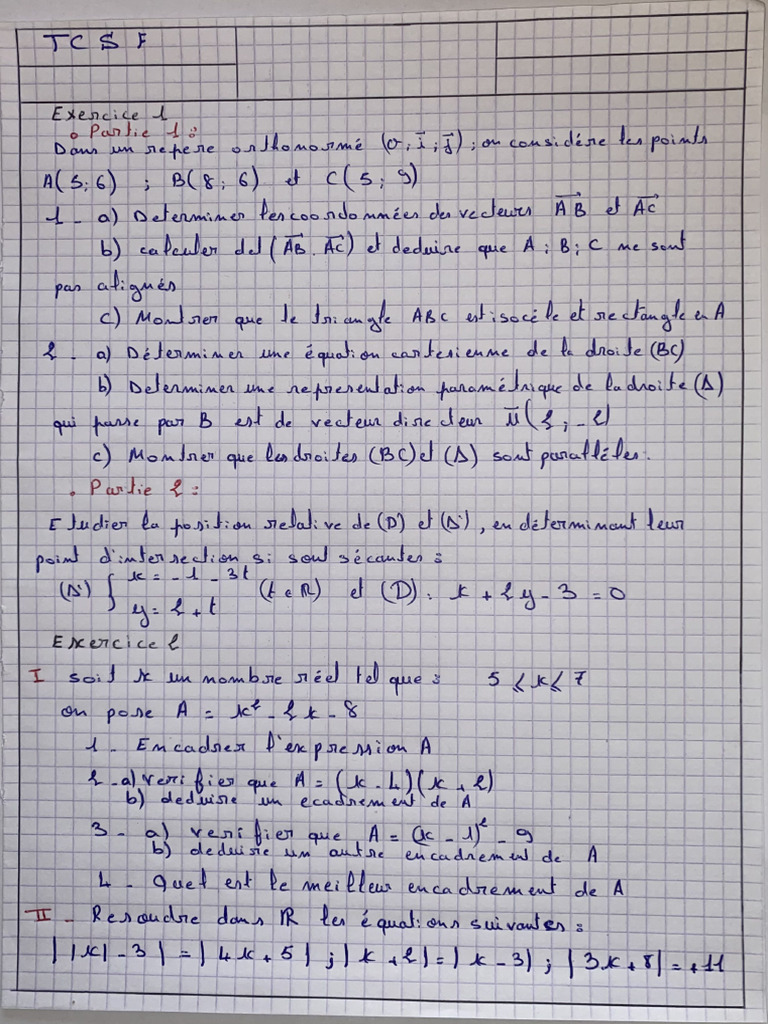 TCSF
Exercice 1
• Partie 1 :
Dans un repere orthonormé (o, i⃗, j⃗) ; on considére les points
A(5;6) ; B(8;6) et C(5;9)
1- a) Determiner les coordonnées des vecteurs A⃗B⃗ et A⃗C⃗
b) calculer det(A⃗B⃗.A⃗C⃗) et deduire que A; B; C ne sont
pas alignés
c) Montrer que le triangle ABC est isocéle et rectangle en A
2- a) Déterminer une équation cartesienne de la droite (BC)
b) Determiner une representation paramétrique de la droite (Δ)
qui passe par B est de vecteur directeur u⃗(2;-2)
c) Montrer que les droites (BC) et (Δ) sont paralléles.
• Partie 2 :
Etudier la position relative de (D) et (Δ'), en déterminant leur
point d'intersection si sont sécantes :
(Δ') { x = -1 - 3t
y = 2 + t (t ∈ ℝ) et (D) : x + 2y - 3 = 0
Exercice 2
I soit x un nombre réel tel que : 5 ⩽ x ⩽ 7
on pose A = x² - 2x - 8
1- Encadrer l'expression A
2-a) verifier que A = (x - 4)(x + 2)
b) deduire un ecadrement de A
3- a) verifier que A = (x - 1)² - 9
b) deduire un autre encadrement de A
4- Quel est le meilleur encadrement de A
II- Resoudre dans ℝ les équations suivantes :
||x| - 3| = |4x + 5| ; |x + 2| = |x - 3| ; |3x + 8| = +11